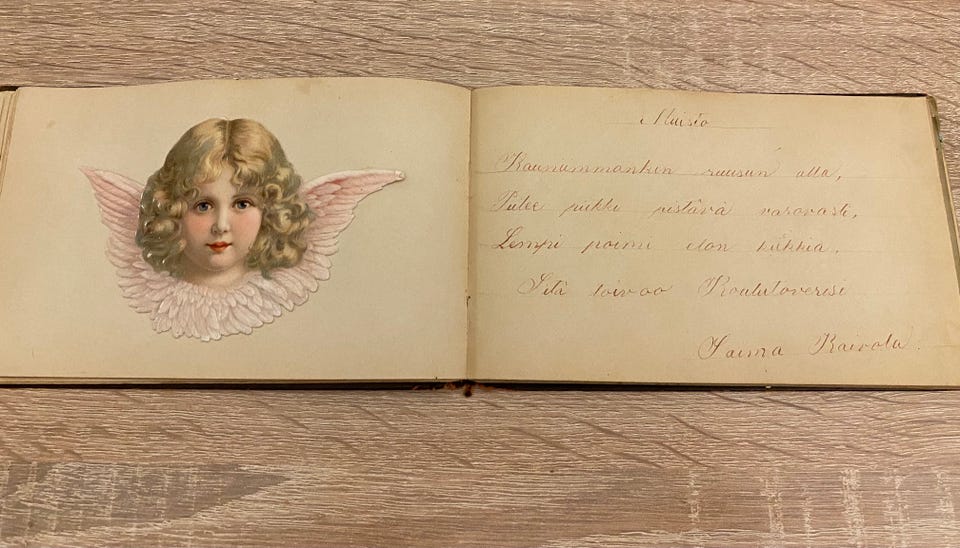 Muisto
Kaunummankin ruusun alla,
Piilee piikki pistävä varovasti,
Lempi poimi elon kukkia.
Sitä toivoo Koulutoverisi
Saima Kaivola